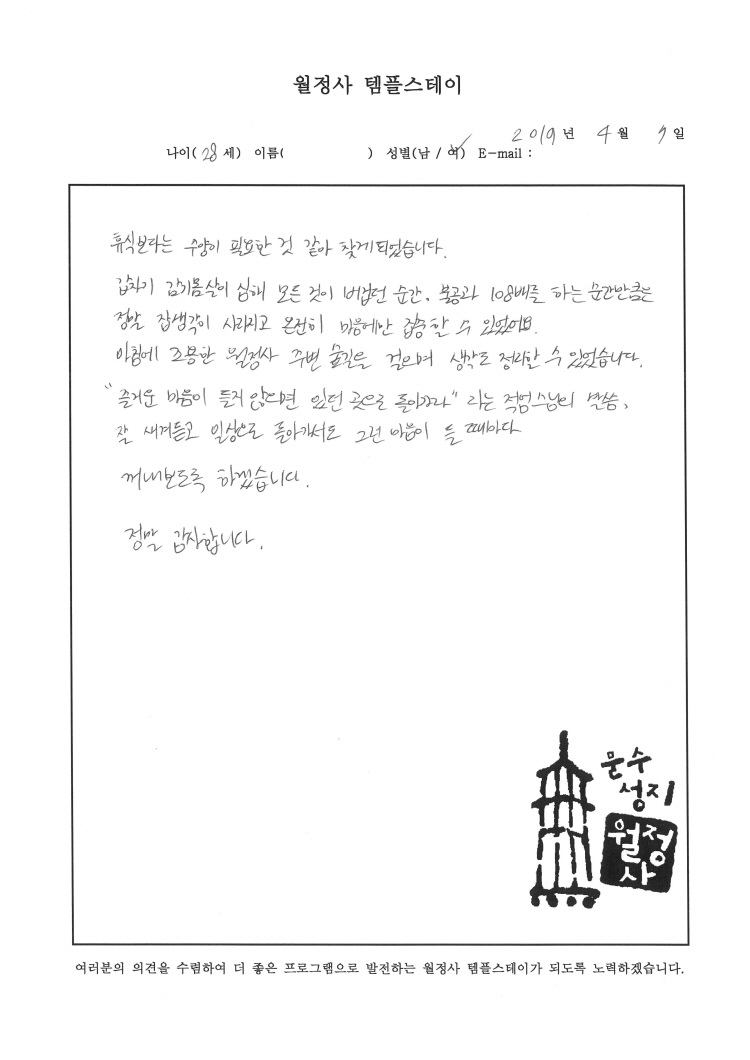 월정사 템플스테이
2019 년 4 월 7 일
나이( 28 세) 이름( ) 성별(남 / 여) E-mail :
휴식보다는 수양이 필요한 것 같아 찾게되었습니다.
갑자기 감기몸살이 심해 모든 것이 버겁던 순간, 불공과 108배를 하는 순간만큼은
정말 잡생각이 사라지고 온전히 마음에만 집중할 수 있었어요.
아침에 조용한 월정사 주변 숲길을 걸으며 생각도 정리할 수 있었습니다.
"즐거운 마음이 들지 않으면 있던 곳으로 돌아가라" 라는 적엄스님의 말씀,
잘 새겨듣고 일상으로 돌아가서도 그런 마음이 들 때마다
꺼내보도록 하겠습니다.
정말 감사합니다.
문수
성지
월정
사
여러분의 의견을 수렴하여 더 좋은 프로그램으로 발전하는 월정사 템플스테이가 되도록 노력하겠습니다.